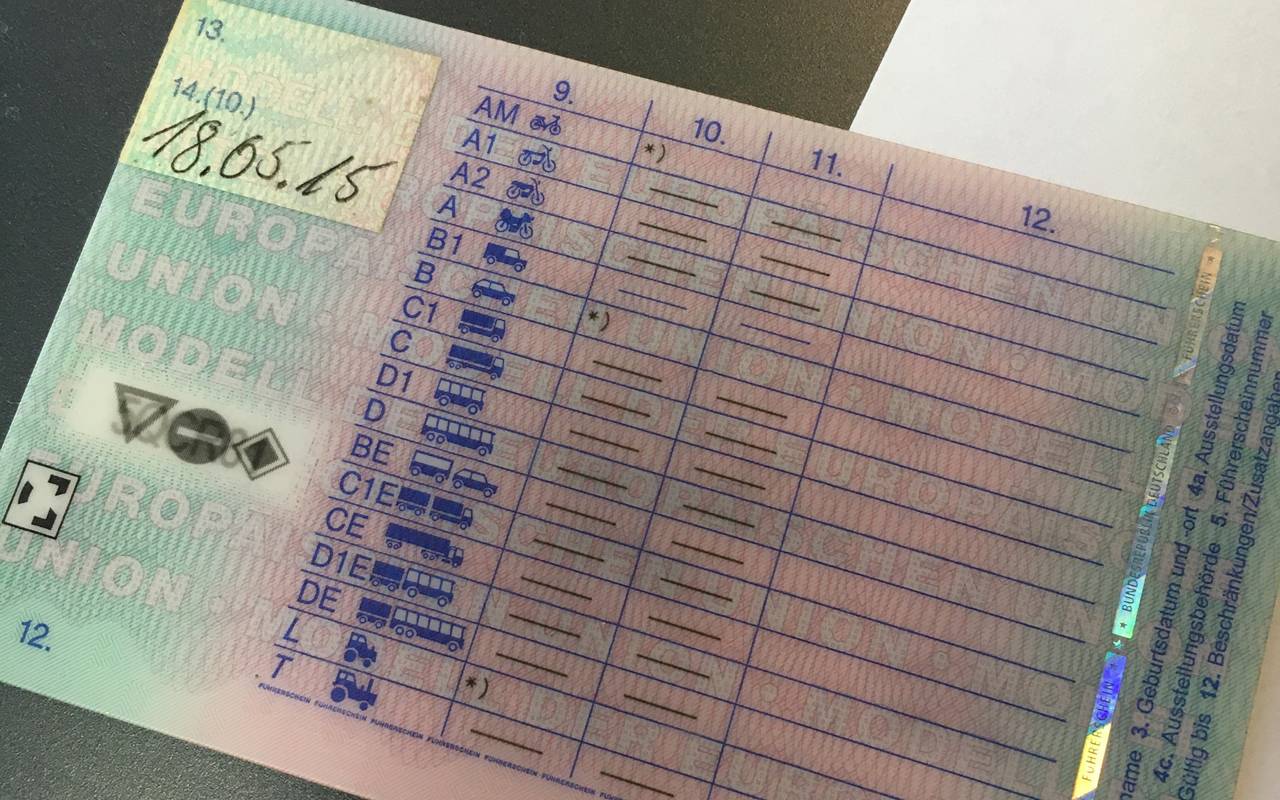 13.
14.(10.)
18.05.15
9.
10.
11.
12.
AM *)
A1
A2
A
B1
B *)
C1
C
D1
D
BE
C1E
CE
D1E
DE
L *)
T
12.
EUROPÄISCHEN
UNION · MODELL
MODELL
EUROPÄISCHEN
UNION · MODELL
FÜHRERSCHEIN FÜHRERSCHEIN FÜHRERSCHEIN FÜHRERSCHEIN FÜHRERSCHEIN FÜHRERSCHEIN
FÜHRERSCHEIN * BUNDESREPUBLIK DEUTSCHLAND * FÜHRERSCHEIN
name 3. Geburtsdatum und -ort 4a. Ausstellungsdatum
4c. Ausstellungsbehörde 5. Führerscheinnummer
Gültig bis 12. Beschränkungen/Zusatzangaben